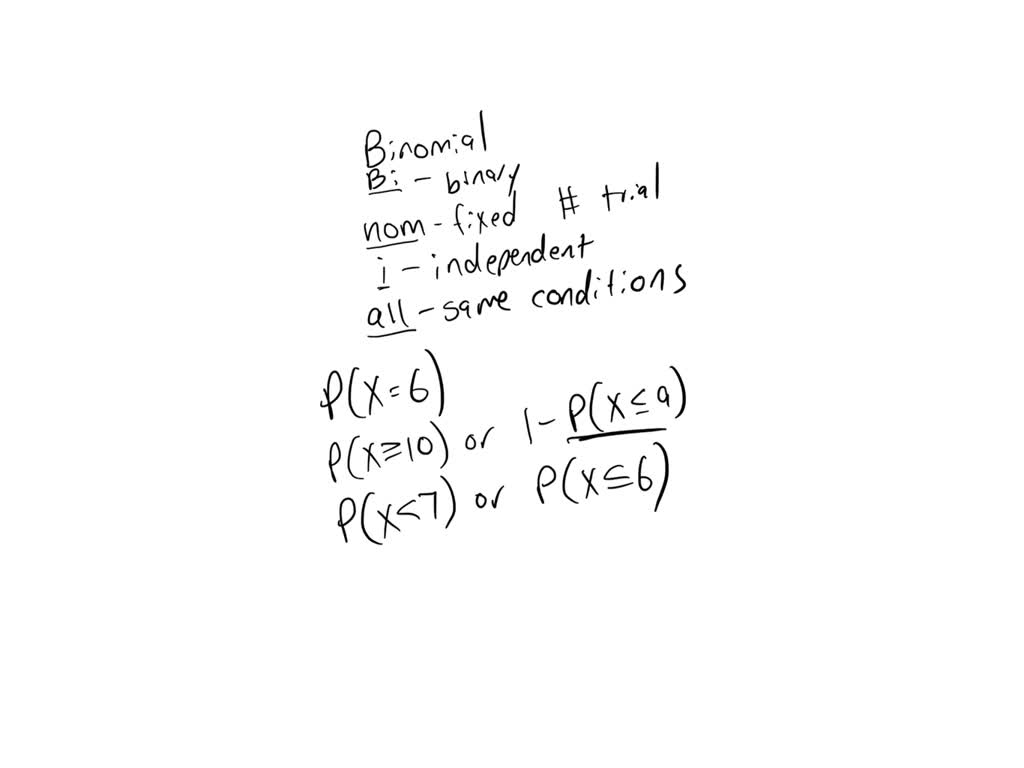 Binomial
Bi - binary
nom - fixed # trial
i - independent
all - same conditions
P(X=6)
P(X≥10) or 1-P(X≤9)
P(X<7) or P(X≤6)